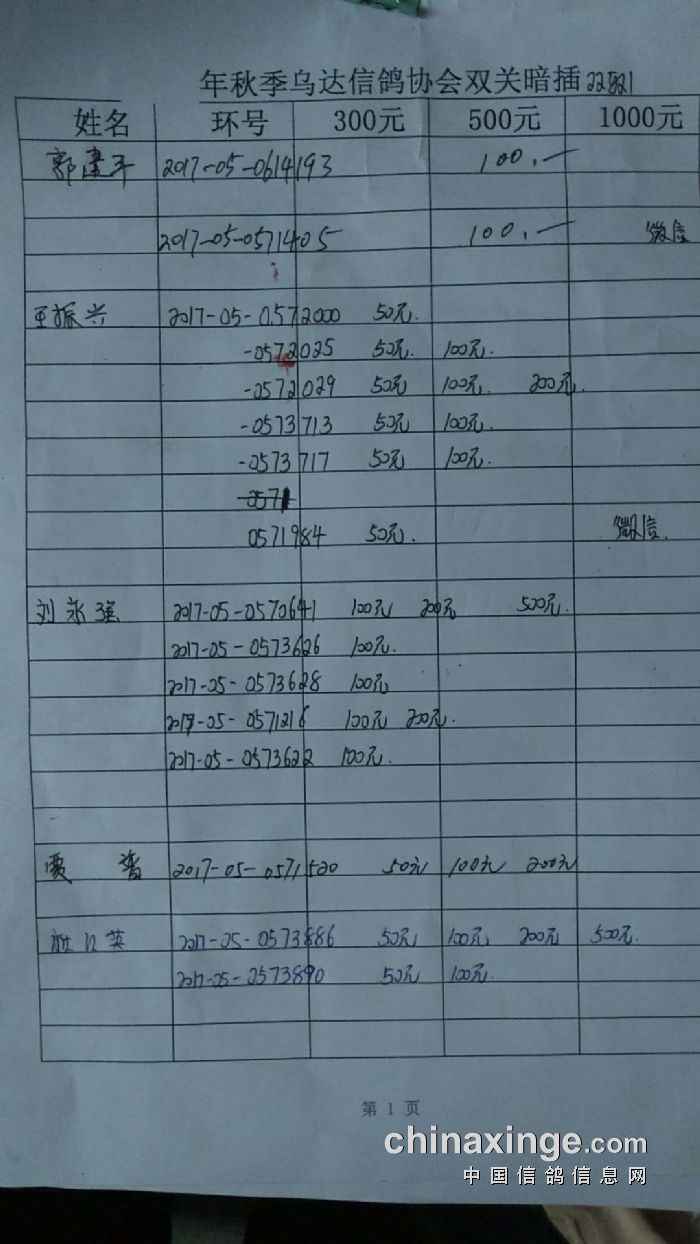 年秋季乌达信鸽协会双关暗插
姓名 环号 300元 500元 1000元
郭建平 2017-05-0614193 100.一
2017-05-0571405 100.一 微信
王振兴 2017-05-0572000 50元.
-0572025 50元. 100元.
-0572029 50元 100元. 200元.
-0573713 50元 100元.
-0573717 50元 100元.
0571
0571984 50元. 微信.
刘永强 2017-05-0570641 100元 200元 500元.
2017-05-0573626 100元.
2017-05-0573628 100元
2017-05-0571216 100元 200元.
2017-05-0573622 100元.
贾 2017-05-0571520 50元 100元 200元
英 2017-05-0573886 50元 100元 200元 500元.
2017-05-0573890 50元 100元.
第 1 页
chinaxinge.com
中国信鸽信息网